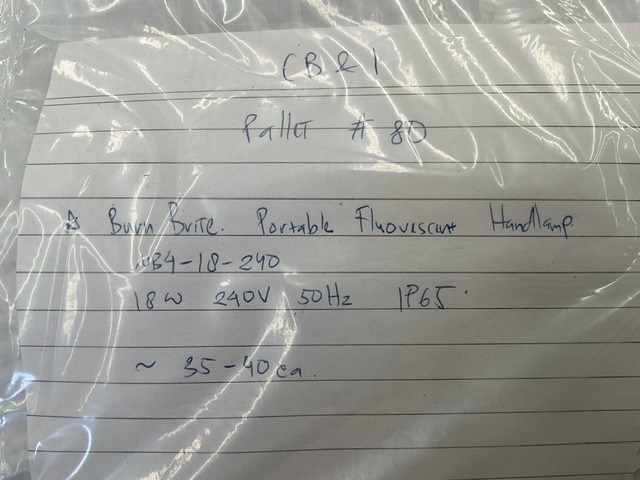 CB&I
Pallet # 80
Burn Brite. Portable Fluorescent Handlamp
18W 240V 50Hz IP65
~ 35-40 ea.